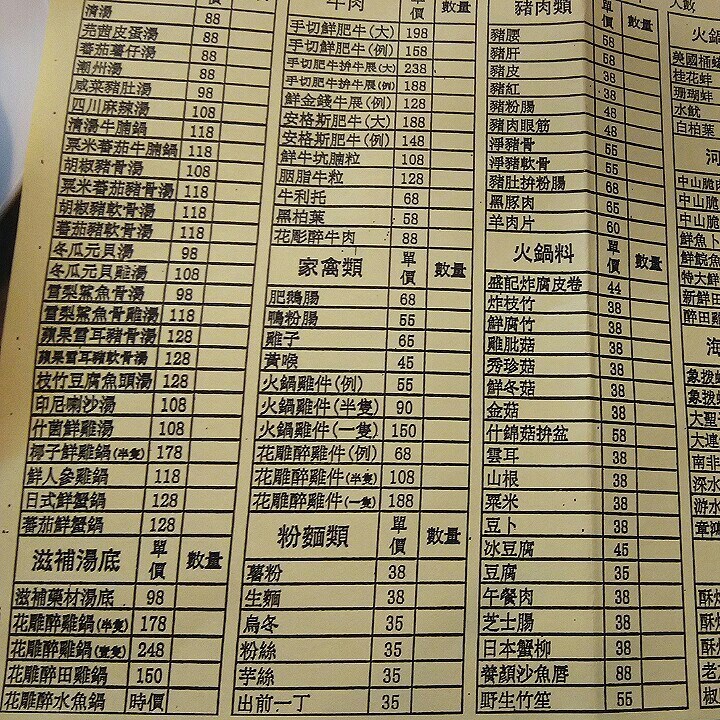 清湯 88
芫茜皮蛋湯 88
蕃茄薯仔湯 88
潮州湯 88
咸菜豬肚湯 98
四川麻辣湯 108
清湯牛腩鍋 118
粟米蕃茄牛腩鍋 118
胡椒豬骨湯 108
粟米蕃茄豬骨湯 118
胡椒豬軟骨湯 118
蕃茄豬軟骨湯 118
冬瓜元貝湯 98
冬瓜元貝雞湯 108
雪梨鯊魚骨湯 98
雪梨鯊魚骨雞湯 118
蘋果雪耳豬骨湯 128
蘋果雪耳豬軟骨湯 128
枝竹豆腐魚頭湯 128
印尼喇沙湯 108
什菌鮮雞湯 108
椰子鮮雞鍋(半隻) 178
鮮人參雞鍋 118
日式鮮蟹鍋 128
蕃茄鮮蟹鍋 128
滋補湯底 單價 數量
滋補藥材湯底 98
花雕醉雞鍋(半隻) 178
花雕醉雞鍋(壹隻) 248
花雕醉田雞鍋 150
花雕醉水魚鍋 時價
牛肉 價 數量
手切鮮肥牛(大) 198
手切鮮肥牛(例) 158
手切肥牛拚牛展(大) 238
手切肥牛拚牛展(例) 188
鮮金錢牛展(例) 128
安格斯肥牛(大) 188
安格斯肥牛(例) 148
鮮牛坑腩粒 108
胭脂牛粒 128
牛利托 68
黑柏葉 58
花彫醉牛肉 88
家禽類 單價 數量
肥鵝腸 68
鴨粉腸 55
雞子 65
黃喉 45
火鍋雞件(例) 55
火鍋雞件(半隻) 90
火鍋雞件(一隻) 150
花雕醉雞件(例) 68
花雕醉雞件(半隻) 108
花雕醉雞件(一隻) 188
粉麵類 單價 數量
薯粉 38
生麵 38
烏冬 35
粉絲 35
芋絲 35
出前一丁 35
豬肉類 單價 數量
豬腰 58
豬肝 58
豬皮 38
豬紅 38
豬粉腸 48
豬肉眼筋 48
淨豬骨 55
淨豬軟骨 55
豬肚拚粉腸 68
黑豚肉 65
羊肉片 60
火鍋料 單價 數量
盛記炸腐皮卷 44
炸枝竹 38
鮮腐竹 38
雞肶菇 38
秀珍菇 38
鮮冬菇 38
金菇 38
什錦菇拚盆 58
雲耳 38
山根 38
粟米 38
豆卜 38
冰豆腐 45
豆腐 35
午餐肉 38
芝士腸 38
日本蟹柳 38
養顏沙魚唇 88
野生竹笙 55
人數
火鍋
美國桶蠔
桂花蚌
珊瑚蚌
水魷
白柏葉
河
中山脆
中山脆
中山脆
鮮魚卜
鮮鯇魚
特大鮮
新鮮田
醉田雞
海
象拔蚌
象拔蚌
大聖
大連
南非
深水
游水
章鴻
酥炸
酥炸
酥炸
老
椒